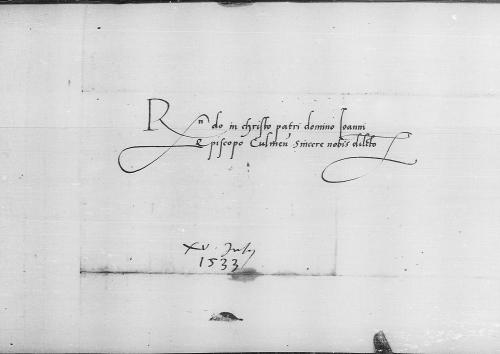 Rndo in christo patri domino Joanni
Episcopo Culmen sincere nobis dilcto
XV. July
1533